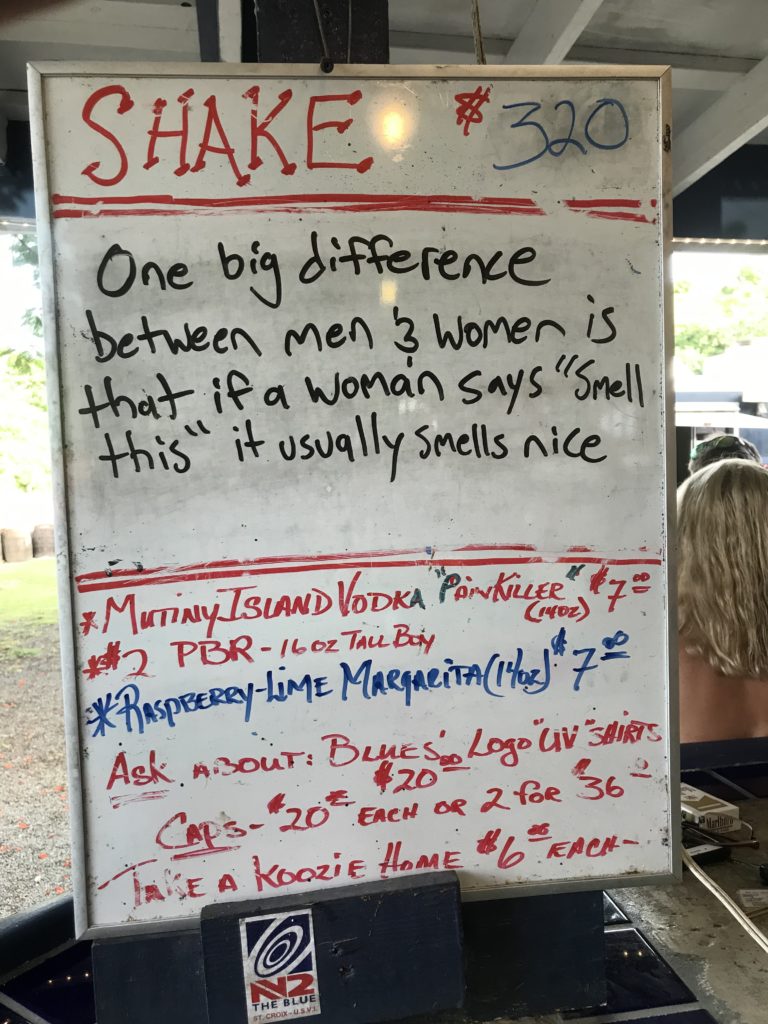 SHAKE $320
One big difference
between men & women is
that if a woman says "Smell
this" it usually smells nice
*MUTINY ISLAND VODKA "PAINKILLER" $7.00
(14oz)
*$2 PBR - 16oz TALL BOY
*RASPBERRY-LIME MARGARITA (14oz) $7.00
ASK ABOUT: BLUES' LOGO "UV" SHIRTS
$20.00
CAPS - $20 EACH OR 2 FOR $36
TAKE A KOOZIE HOME $6.00 EACH-
Marlboro
N2
THE BLUE
ST. CROIX - U.S.V.I.